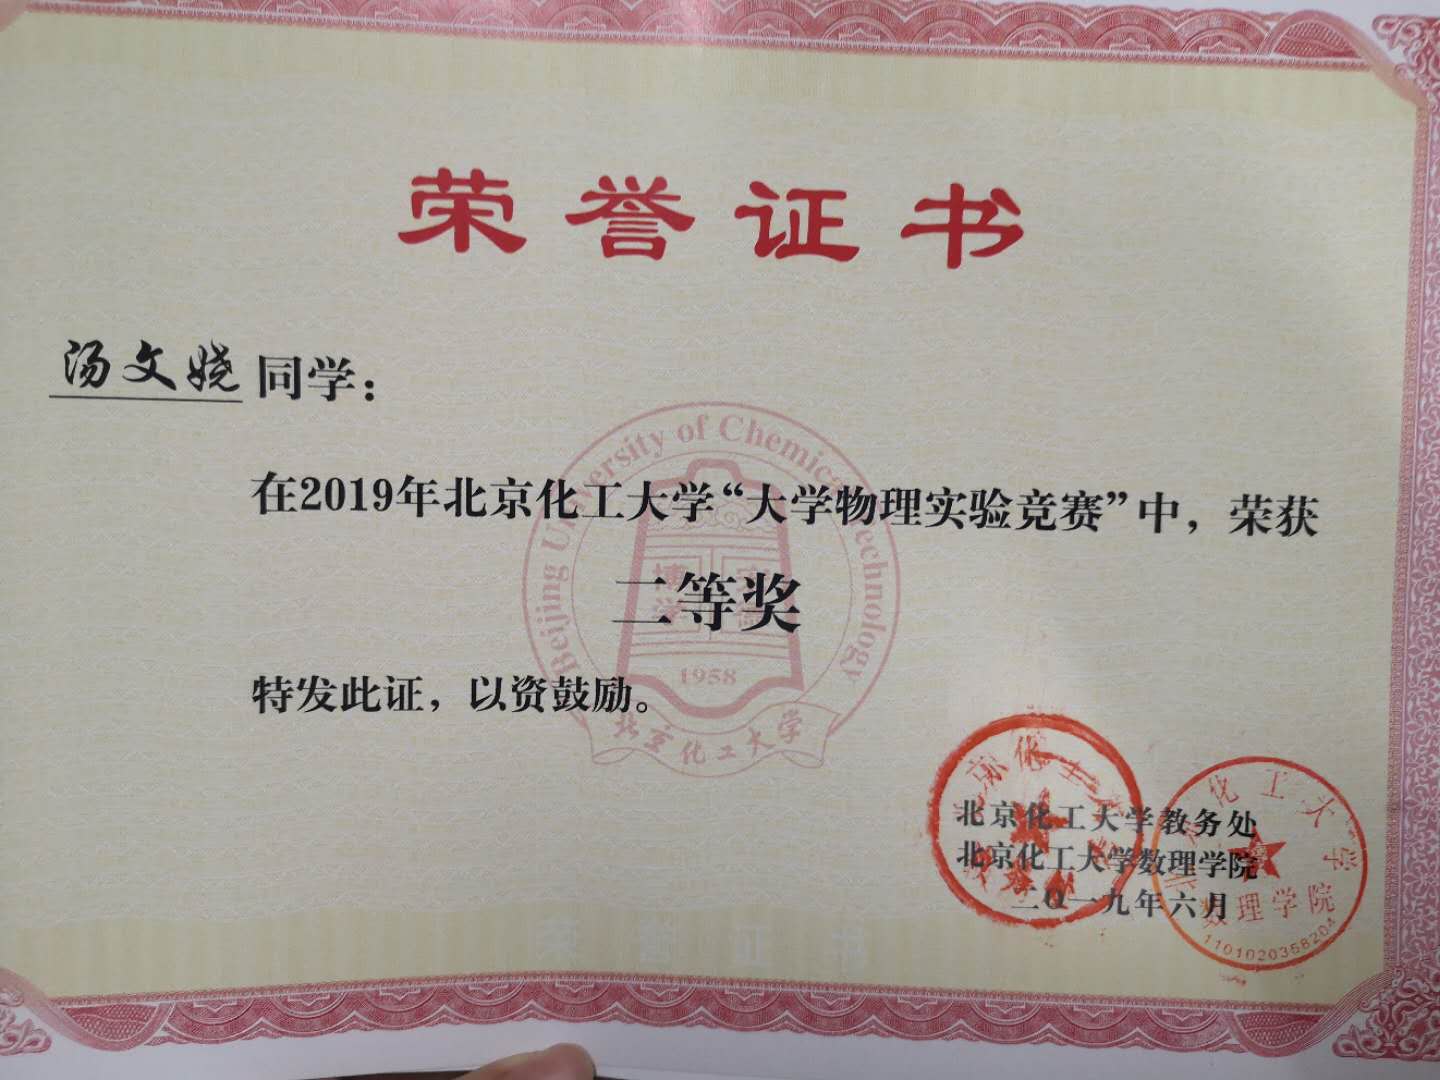 荣誉证书
汤文娆同学：
在2019年北京化工大学“大学物理实验竞赛”中，荣获
二等奖
特发此证，以资鼓励。
Beijing University of Chemical Technology
1958
北京化工大学
北京化工大学教务处
北京化工大学数理学院
二〇一九年六月
北京化工大学
数理学院
1101020358204
荣誉证书